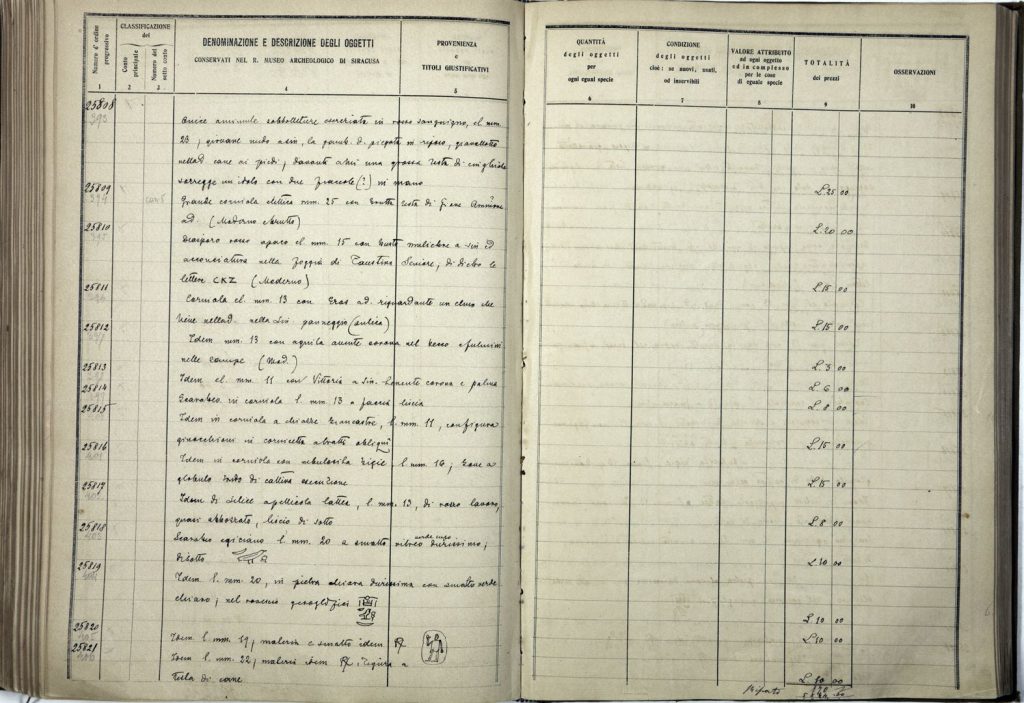 Numero d'ordine progressivo
CLASSIFICAZIONE
del
Conto principale
Numero del sotto conto
DENOMINAZIONE E DESCRIZIONE DEGLI OGGETTI
CONSERVATI NEL R. MUSEO ARCHEOLOGICO DI SIRACUSA
PROVENIENZA
e
TITOLI GIUSTIFICATIVI
QUANTITÀ
degli oggetti
per
ogni egual specie
CONDIZIONE
degli oggetti
cioè: se nuovi, usati,
od inservibili
VALORE ATTRIBUITO
ad ogni oggetto
ed in complesso
per le cose
di eguale specie
TOTALITÀ
dei prezzi
OSSERVAZIONI
1 2 3 4 5 6 7 8 9 10
25808
393
Onice in rosso sanguigno, el. mm.
23; giovane nudo a sin, la gamb. d. piegata in riposo,
nella d. cane ai piedi; davanti a lui una grossa testa di cinghiale
sorregge un idolo con due fiaccole (?) in mano L. 25 00
25809
394
Grande corniola elittica mm. 25 con testa di Giove Ammone
ad. (Moderno L. 20 00
25810
Diaspro rosso opaco el. mm. 15 con busto muliebre a sin ed
acconciatura nella foggia di Faustina Seniore, di dietro le
lettere CKZ (Moderno) L. 15 00
25811
Corniola el. mm. 13 con Eros ad. riguardante un elmo che
tiene nella d. nella sin. (antica) L. 15 00
25812
Idem mm. 13 con aquila avente corona nel becco e fulmini
nelle zampe (Mod.) L. 3 00
25813
Idem el. mm. 11 con Vittoria a sin. tenente corona e palma L. 6 00
25814
Scarabeo in corniola l. mm. 13 a faccia liscia L. 8 00
25815
Idem in corniola a chiazze biancastre, l. mm. 11, con figura
ginocchioni in cornicetta a tratti obliqui L. 15 00
25816
401
Idem in corniola con l. mm. 16; cane a
globulo tondo di cattiva esecuzione L. 15 00
25817
402
Idem di selice a pellicola lattea, l. mm. 13, di rosso lavoro,
quasi abbozzato, liscio di sotto L. 8 00
25818
403
Scarabeo egiziano l. mm. 20 a smalto vitreo verde cupo durissimo;
disotto L. 10 00
25819
Idem l. mm. 20, in pietra chiara durissima con smalto verde
chiaro; nel rovescio geroglifici L. 10 00
25820
405
Idem l. mm. 19; materia e smalto idem R/ L. 10 00
25821
406
Idem l. mm. 22; materia idem R/ figura a
testa di cane L. 10 00
Riporto